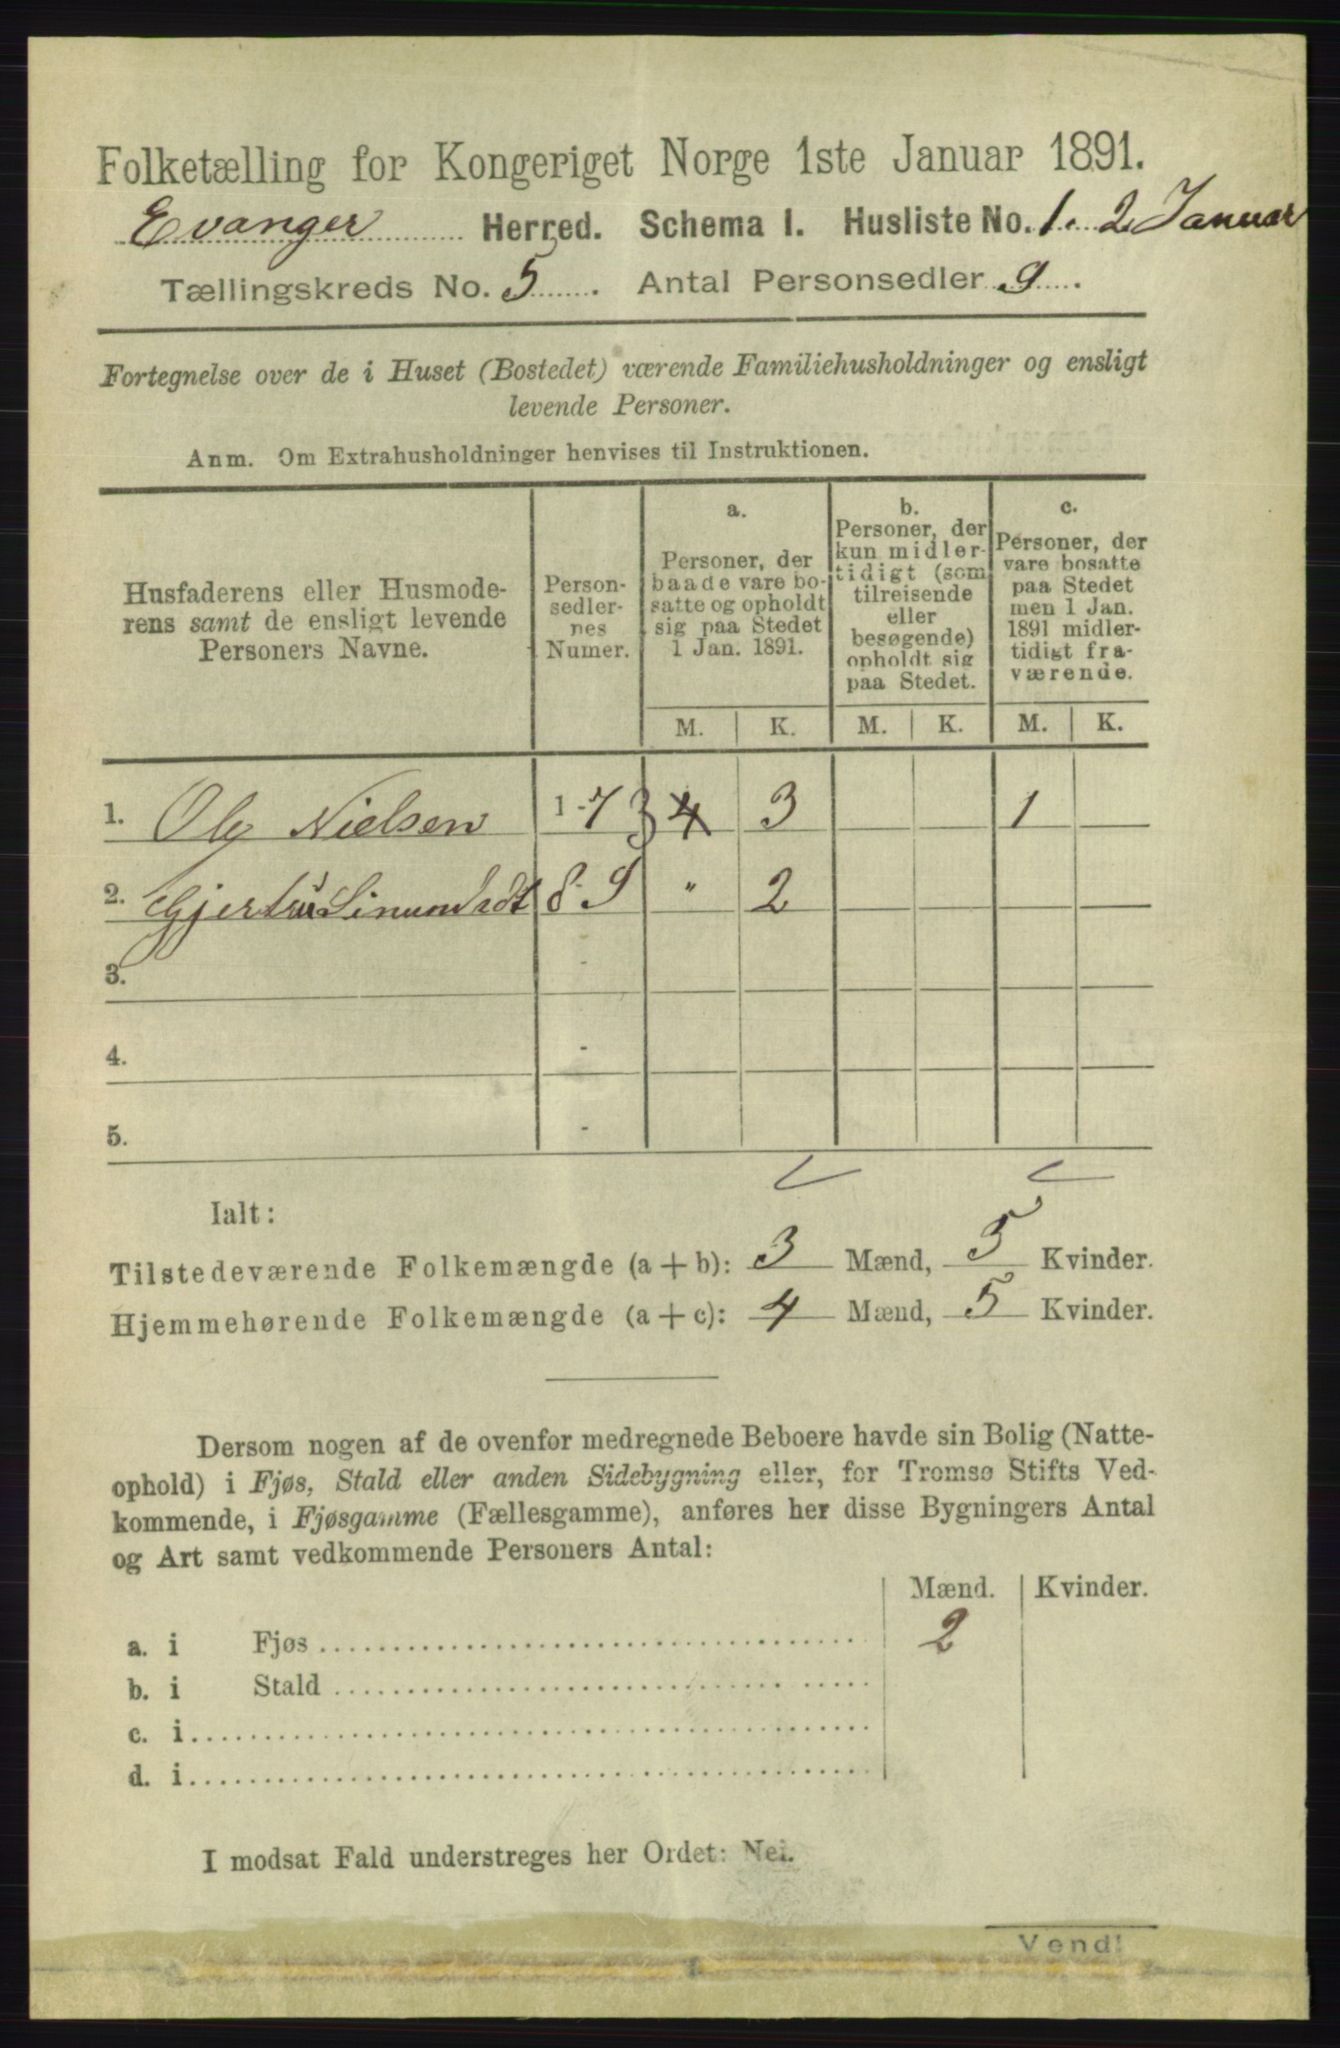 Folketælling for Kongeriget Norge 1ste Januar 1891.
Evanger Herred. Schema I. Husliste No. 1. 2 Januar
Tællingskreds No. 5. Antal Personsedler 9.
Fortegnelse over de i Huset (Bostedet) værende Familiehusholdninger og ensligt
levende Personer.
Anm. Om Extrahusholdninger henvises til Instruktionen.
Husfaderens eller Husmode-
rens samt de ensligt levende
Personers Navne.
Person-
sedler-
nes
Numer.
a.
Personer, der
baade vare bo-
satte og opholdt
sig paa Stedet
1 Jan. 1891.
b.
Personer, der
kun midler-
tidigt (som
tilreisende
eller
besøgende)
opholdt sig
paa Stedet.
c.
Personer, der
vare bosatte
paa Stedet
men 1 Jan.
1891 midler-
tidigt fra-
værende.
M. K. M. K. M. K.
1. Ole Nielsen 1-7 3 4 3 1
2. Gjertru 8-9 " 2
3. -
4. -
5. -
Ialt:
Tilstedeværende Folkemængde (a + b): 3 Mænd, 5 Kvinder.
Hjemmehørende Folkemængde (a + c): 4 Mænd, 5 Kvinder.
Dersom nogen af de ovenfor medregnede Beboere havde sin Bolig (Natte-
ophold) i Fjøs, Stald eller anden Sidebygning eller, for Tromsø Stifts Ved-
kommende, i Fjøsgamme (Fællesgamme), anføres her disse Bygningers Antal
og Art samt vedkommende Personers Antal:
Mænd. Kvinder.
a. i Fjøs 2
b. i Stald
c. i
d. i
I modsat Fald understreges her Ordet: Nei.
Vend!